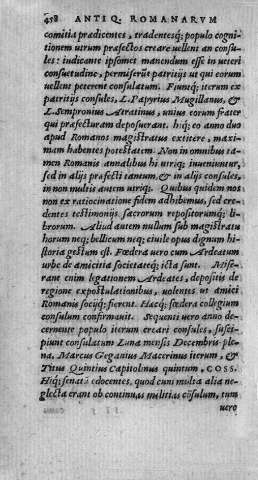 458 ANTIQ. ROMANARVM
comitia prædicentes, tradentesq; populo cogni-
tionem utrum præfectos creare uellent an consu-
les: indicante ipsomet manendum esse in ueteri
consuetudine, permiserũt patritijs ut qui eorum
uellent peterent consulatum. Fiuntq; iterum ex
patritijs consules, L. Papyrius Mugillanus, &
L. Sempronius Atratinus, unius eorum frater
qui præfecturam deposuerant. hiq; eo anno duo
apud Romanos magistratus extitêre, maxi-
mam habentes potestatem. Non in omnibus ta-
men Romanis annalibus hi utriq; inueniuntur,
sed in alijs præfecti tantum, & in alijs consules,
in non multis autem utriq;. Quibus quidem nos
non ex ratiocinatione fidem adhibemus, sed cre-
dentes testimonijs sacrorum repositorumq; li-
brorum. Aliud autem nullum sub magistratu
horum neq; bellicum neq; ciuile opus dignum hi-
storia gestum est. Fœdera uero cum Ardeatum
urbe de amicitia societateq; icta sunt. Mise-
rant enim legationem Ardeates, depositis de
regione expostulationibus, uolentes ut amici
Romanis socijq; fierent. Hacq; fœdera collegium
consulum confirmauit. Sequenti uero anno de-
cernente populo iterum creari consules, susci-
piunt consulatum Luna mensis Decembris ple-
na, Marcus Geganius Macerinus iterum, &
Titus Quintius Capitolinus quintum, COSS.
Hiq; senatũ edocentes, quod cum multa alia ne-
glecta erant ob continuas militias cõsulum, tum
uero